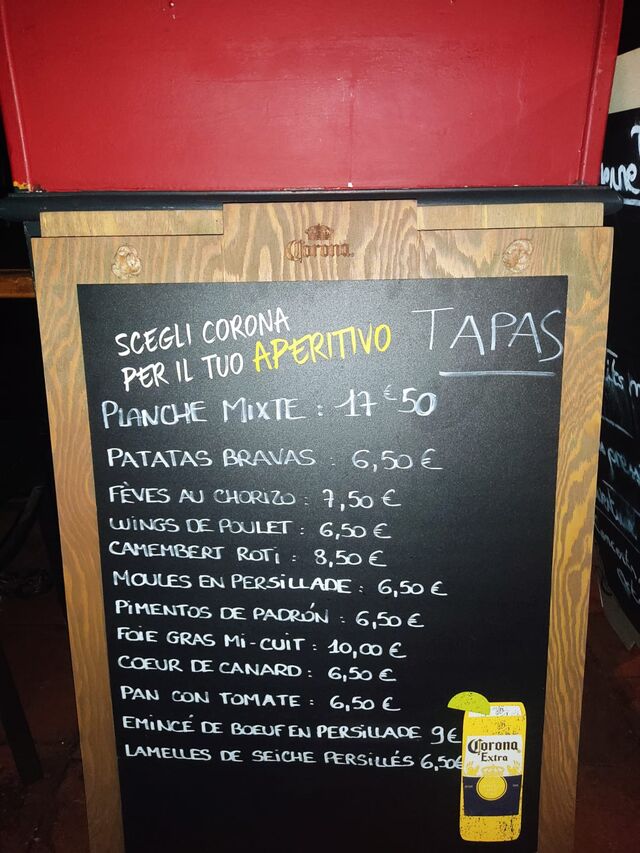 Corona
SCEGLI CORONA
PER IL TUO APERITIVO
TAPAS
PLANCHE MIXTE : 17€50
PATATAS BRAVAS : 6,50 €
FÈVES AU CHORIZO : 7,50 €
WINGS DE POULET : 6,50 €
CAMEMBERT ROTI : 8,50 €
MOULES EN PERSILLADE : 6,50 €
PIMENTOS DE PADRÓN : 6,50 €
FOIE GRAS MI-CUIT : 10,00 €
COEUR DE CANARD : 6,50 €
PAN CON TOMATE : 6,50 €
EMINCÉ DE BOEUF EN PERSILLADE 9€
LAMELLES DE SEICHE PERSILLÉS 6,50€
Corona
Extra